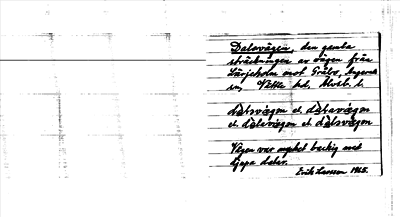 Dalavägen, den gamla
sträckningen av vägen från
Lärjeholm mot Gråbo,
Vättle hd, Älvsb. l.
dalavägen el. dalavägen
el. dalavägen el. dalsvägen
Vägen var mycket backig med
djupa dalar.
Erik Larsson 1965.